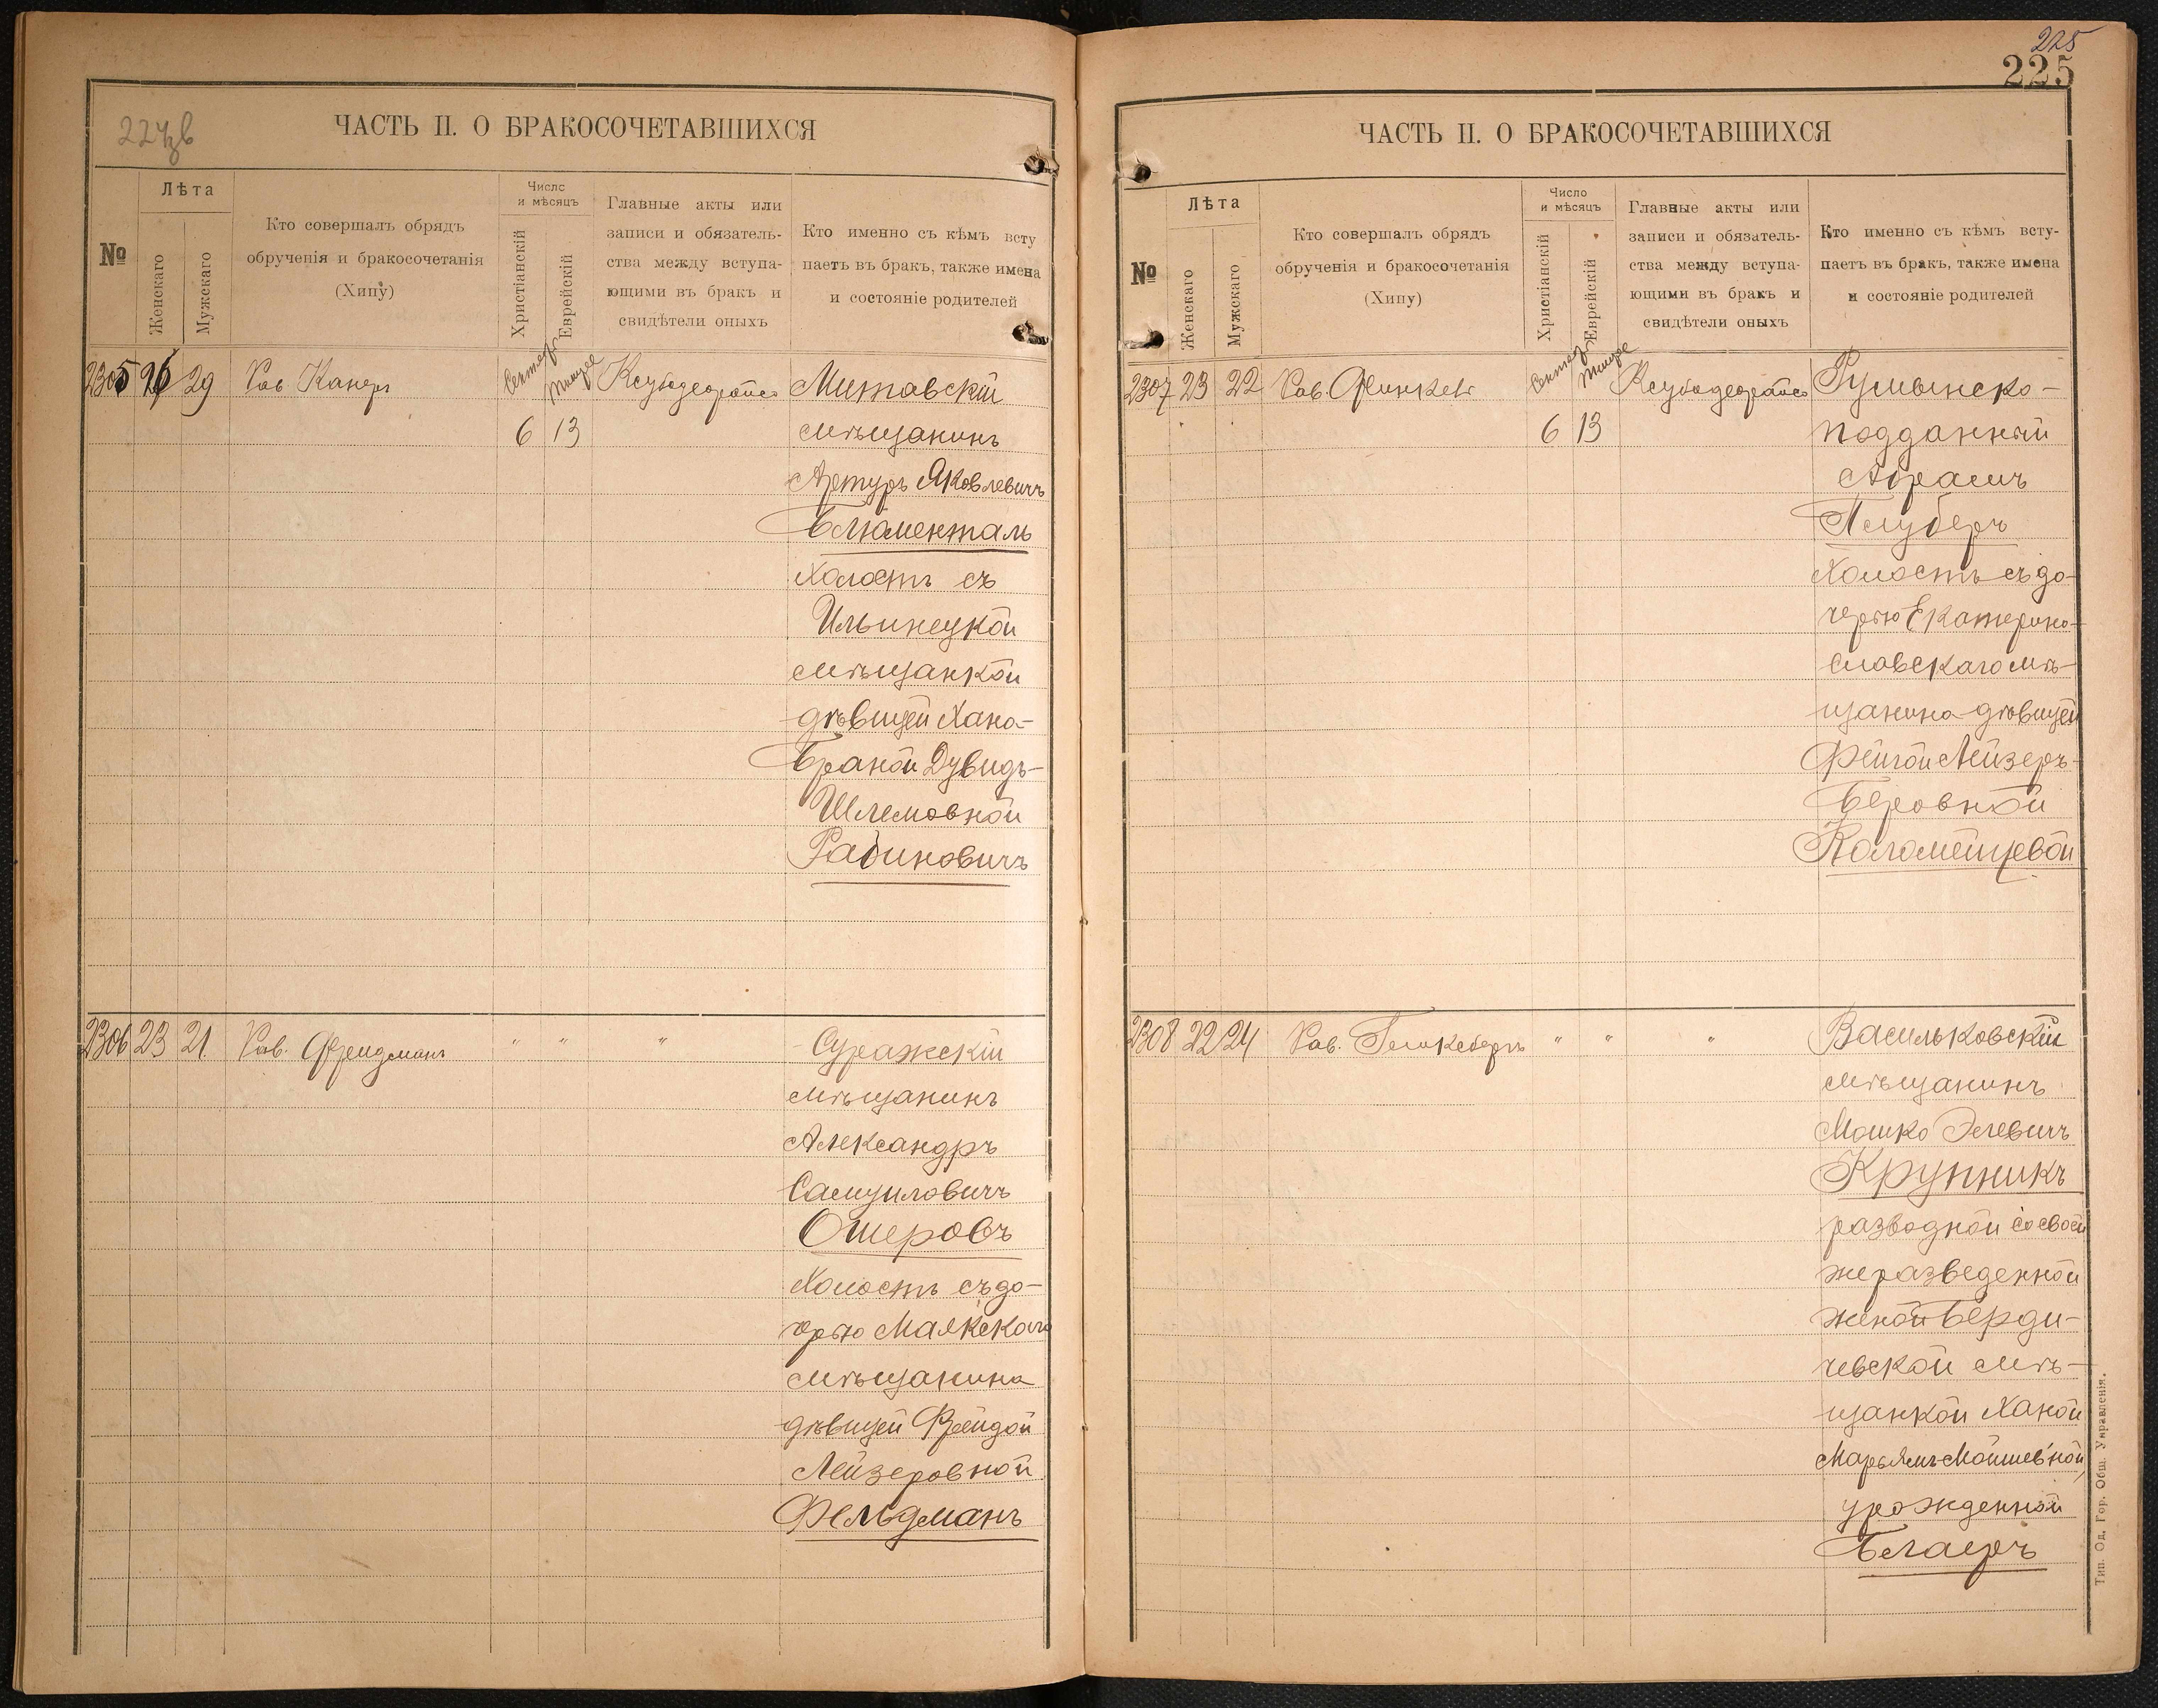 224 зв
ЧАСТЬ II. О БРАКОСОЧЕТАВШИХСЯ
№
Лѣта
Женскаго
Мужскаго
Кто совершалъ обрядъ
обрученія и бракосочетанія
(Хипу)
Число
и мѣсяцъ
Христіанскій
Еврейскій
Главные акты или
записи и обязатель-
ства между вступа-
ющими въ бракъ и
свидѣтели оныхъ
Кто именно съ кѣмъ всту
паетъ въ бракъ, также имена
и состояніе родителей
2305 26 29 Рав Канеръ
Сентяб Тишре
6 13
Митавскій
мѣщанинъ
Артуръ Яковлевичъ
Блюменталь
холостъ съ
Ильинецкой
мѣщанкой
дѣвицей Хана-
Браной Дувидъ-
Шлемовной
Рабиновичъ
2306 23 21 Рав. Фридманъ " " "
Суражскій
мѣщанинъ
Александръ
Самуиловичъ
Ошеровъ
холостъ съ до-
черью Маякскаго
мѣщанина
дѣвицей Фрейдой
Лейзеровной
Фельдманъ
225
225
ЧАСТЬ II. О БРАКОСОЧЕТАВШИХСЯ
№
Лѣта
Женскаго
Мужскаго
Кто совершалъ обрядъ
обрученія и бракосочетанія
(Хипу)
Число
и мѣсяцъ
Христіанскій
Еврейскій
Главные акты или
записи и обязатель-
ства между вступа-
ющими въ бракъ и
свидѣтели оныхъ
Кто именно съ кѣмъ всту-
паетъ въ бракъ, также имена
и состояніе родителей
2307 23 22 Рав. Финкель
Сентяб Тишре
6 13
Румынско-
подданный
Абрамъ
Глуберъ
холостъ съ до-
черью Екатерино-
славскаго мѣ-
щанина дѣвицей
Фейгой Лейзеръ-
Беровной
Коломейцевой
2308 22 24 Рав. " " "
Васильковскій
мѣщанинъ
Мошко Элевичъ
Крупникъ
разводной со своей
же разведенной
женой Берди-
чевской мѣ-
щанкой Ханой
Марьямъ Мойшевной,
урожденной
Белаеръ
Тип. Од. Гор. Общ. Управленія.